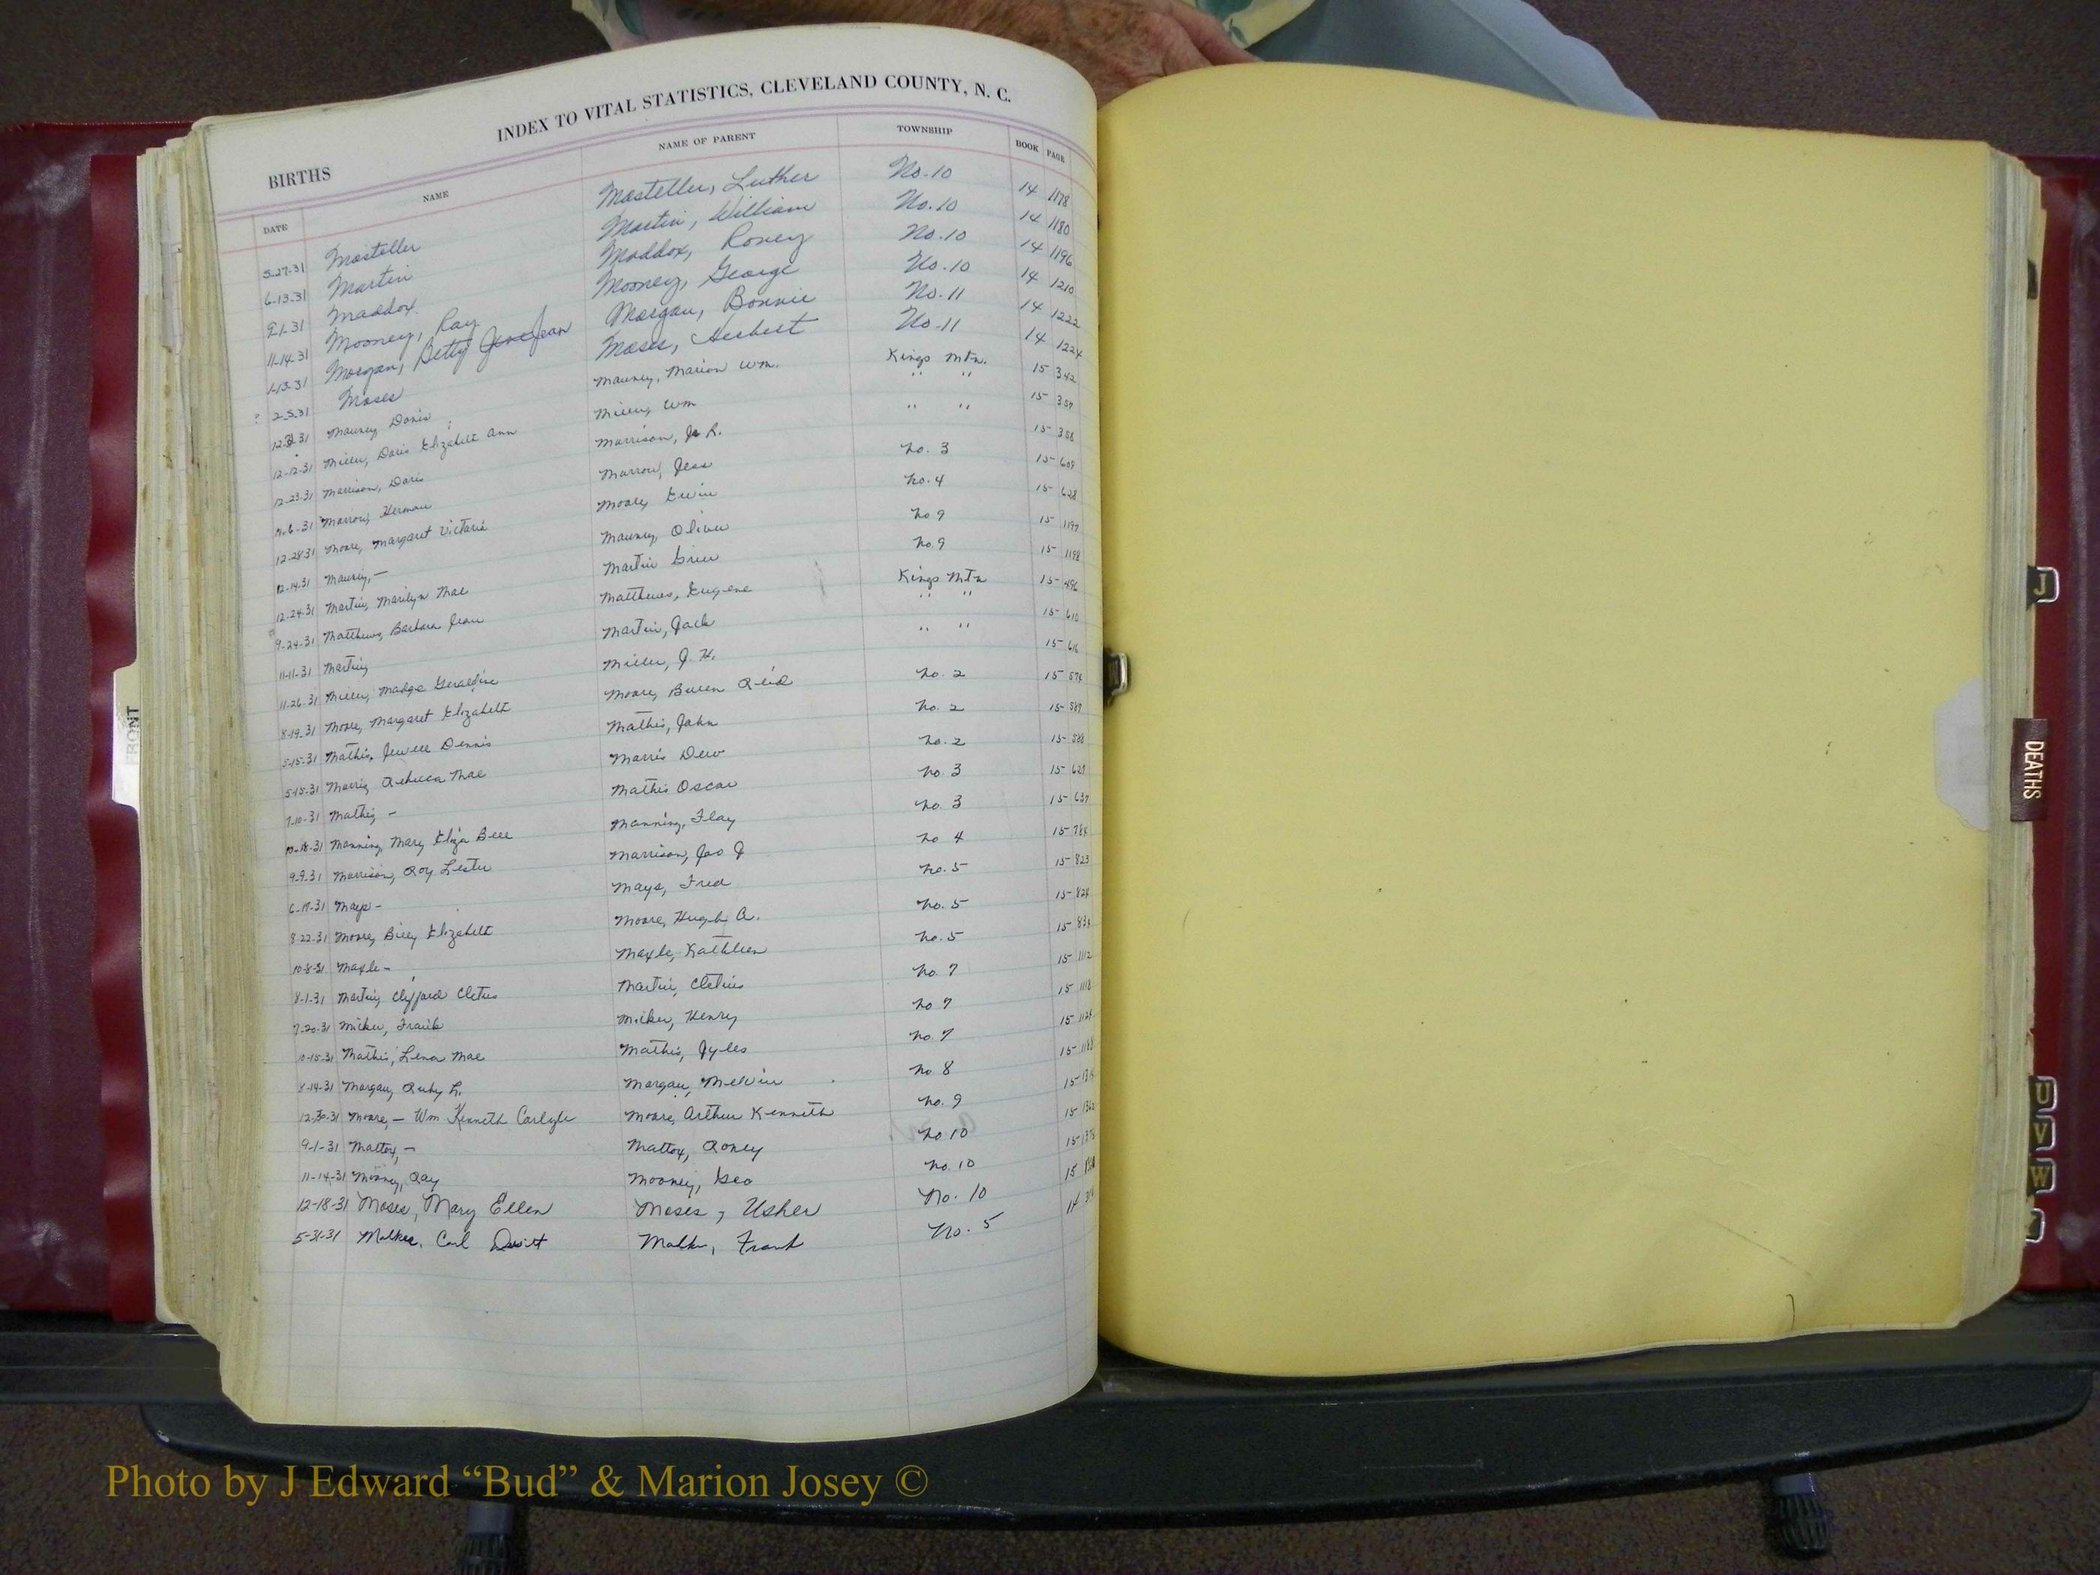 INDEX TO VITAL STATISTICS, CLEVELAND COUNTY, N. C.
BIRTHS
DATE NAME NAME OF PARENT TOWNSHIP BOOK PAGE
5-27-31 Masteller Masteller, Luther No. 10 14 1178
6-13-31 Martin Martin, William No. 10 14 1180
9-1-31 Maddox Maddox, Roney No. 10 14 1196
11-14-31 Mooney, Ray Mooney, George No. 10 14 1210
1-13-31 Morgan, Betty Jean Morgan, Bonnie No. 11 14 1222
? 2-5-31 Moses Moses, Herbert No. 11 14 1224
Mauney, Doris Mauney, Marion Wm. Kings Mtn. 15 342
12-12-31 Miller, Doris Elizabeth Ann Miller, Wm " " 15 357
12-23-31 Morrison, Doris Morrison, R. " " 15 358
Morrow, Herman Morrow, Jess No. 3 15 609
12-28-31 Moore, Margaret Victoria Moore, Ervin No. 4 15 628
12-14-31 Mauney, — Mauney, Oliver No 9 15 1197
12-24-31 Martin, Marilyn Mae Martin No. 9 15 1198
9-24-31 Matthews, Barbara Jean Matthews, Eugene Kings Mtn 15 496
11-11-31 Martin, Martin, Jack " " 15 610
11-26-31 Miller, Madge Geraldine Miller, J. H. " " 15 616
8-19-31 Moore, Margaret Elizabeth Moore, Buren Reid No. 2 15 574
5-15-31 Mathis, Jewell Dennis Mathis, John No. 2 15 587
5-15-31 Morris, Rebecca Mae Morris Dew No. 2 15 588
7-10-31 Mathis, - Mathis Oscar No. 3 15 627
10-18-31 Manning, Mary Eliza Bell Manning, Flay No. 3 15 637
9-9-31 Morrison, Roy Lester Morrison, Jno J No 4 15 784
6-17-31 Mays - Mays, Fred No. 5 15 823
8-22-31 Moore, Billy Elizabeth Moore, Hugh A. No. 5 15 824
10-8-31 Mayle - Mayle, Kathleen No. 5 15
8-1-31 Martin, Clifford Cletus Martin, Cletus No. 7 15 1112
7-20-31 Frank Henry No 7 15 1118
10-15-31 Mathis, Lena Mae Mathis, Jyles No. 7 15
8-14-31 Morgan, Ruby L. Morgan, Melvin No 8 15
12-30-31 Moore, — Wm Kenneth Carlyle Moore, Arthur Kenneth No. 9 15
9-1-31 Mattox, — Mattox, Roney No 10 15
11-14-31 Mooney, Ray Mooney, Geo No. 10 15
12-18-31 Moses, Mary Ellen Moses, Usher No. 10 15
5-31-31 Carl Dwitt Frank No. 5 14
FRONT
J
DEATHS
U
V
W
Photo by J Edward “Bud” & Marion Josey ©